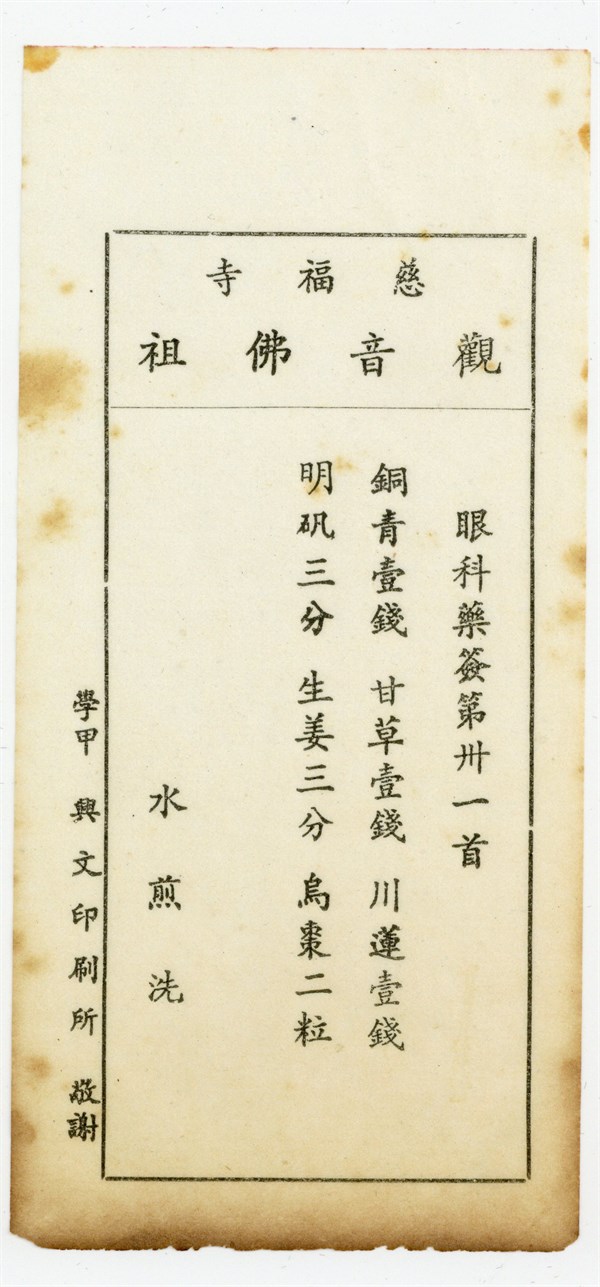 慈福寺
觀音佛祖
眼科藥簽第卅一首
銅青壹錢 甘草壹錢 川蓮壹錢
明矾三分 生姜三分 烏棗二粒
水煎洗
學甲 興文印刷所 敬謝